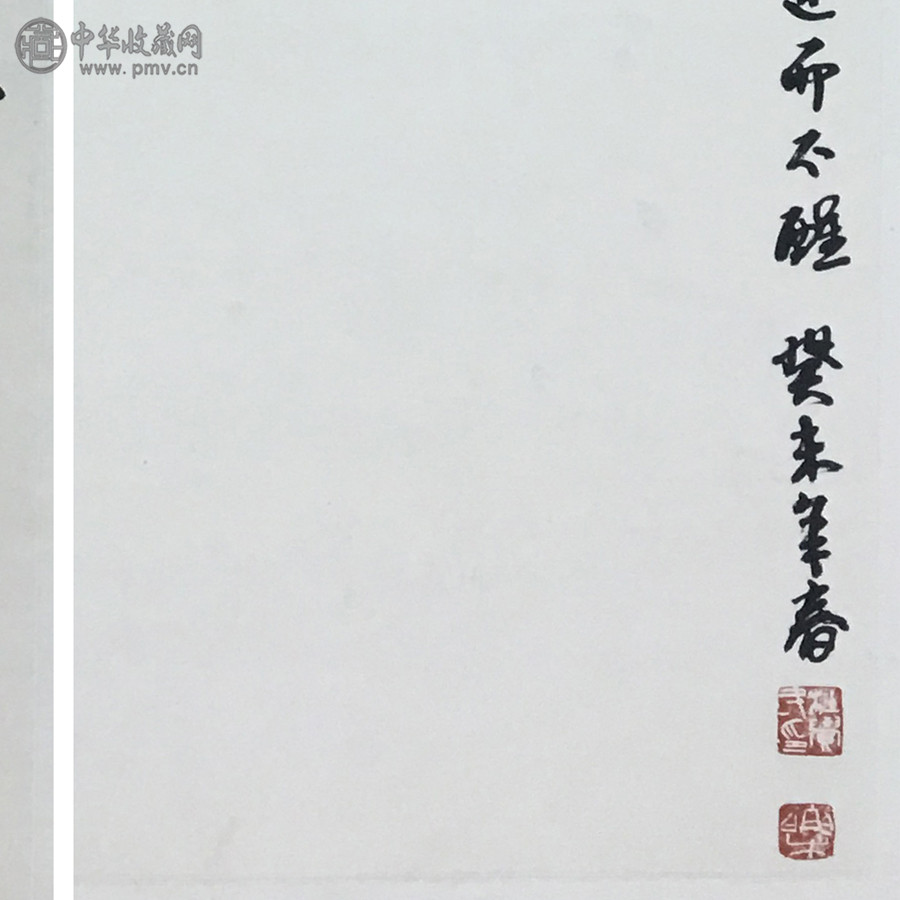 中华收藏网
www.pmv.cn
而不醒 癸未年春